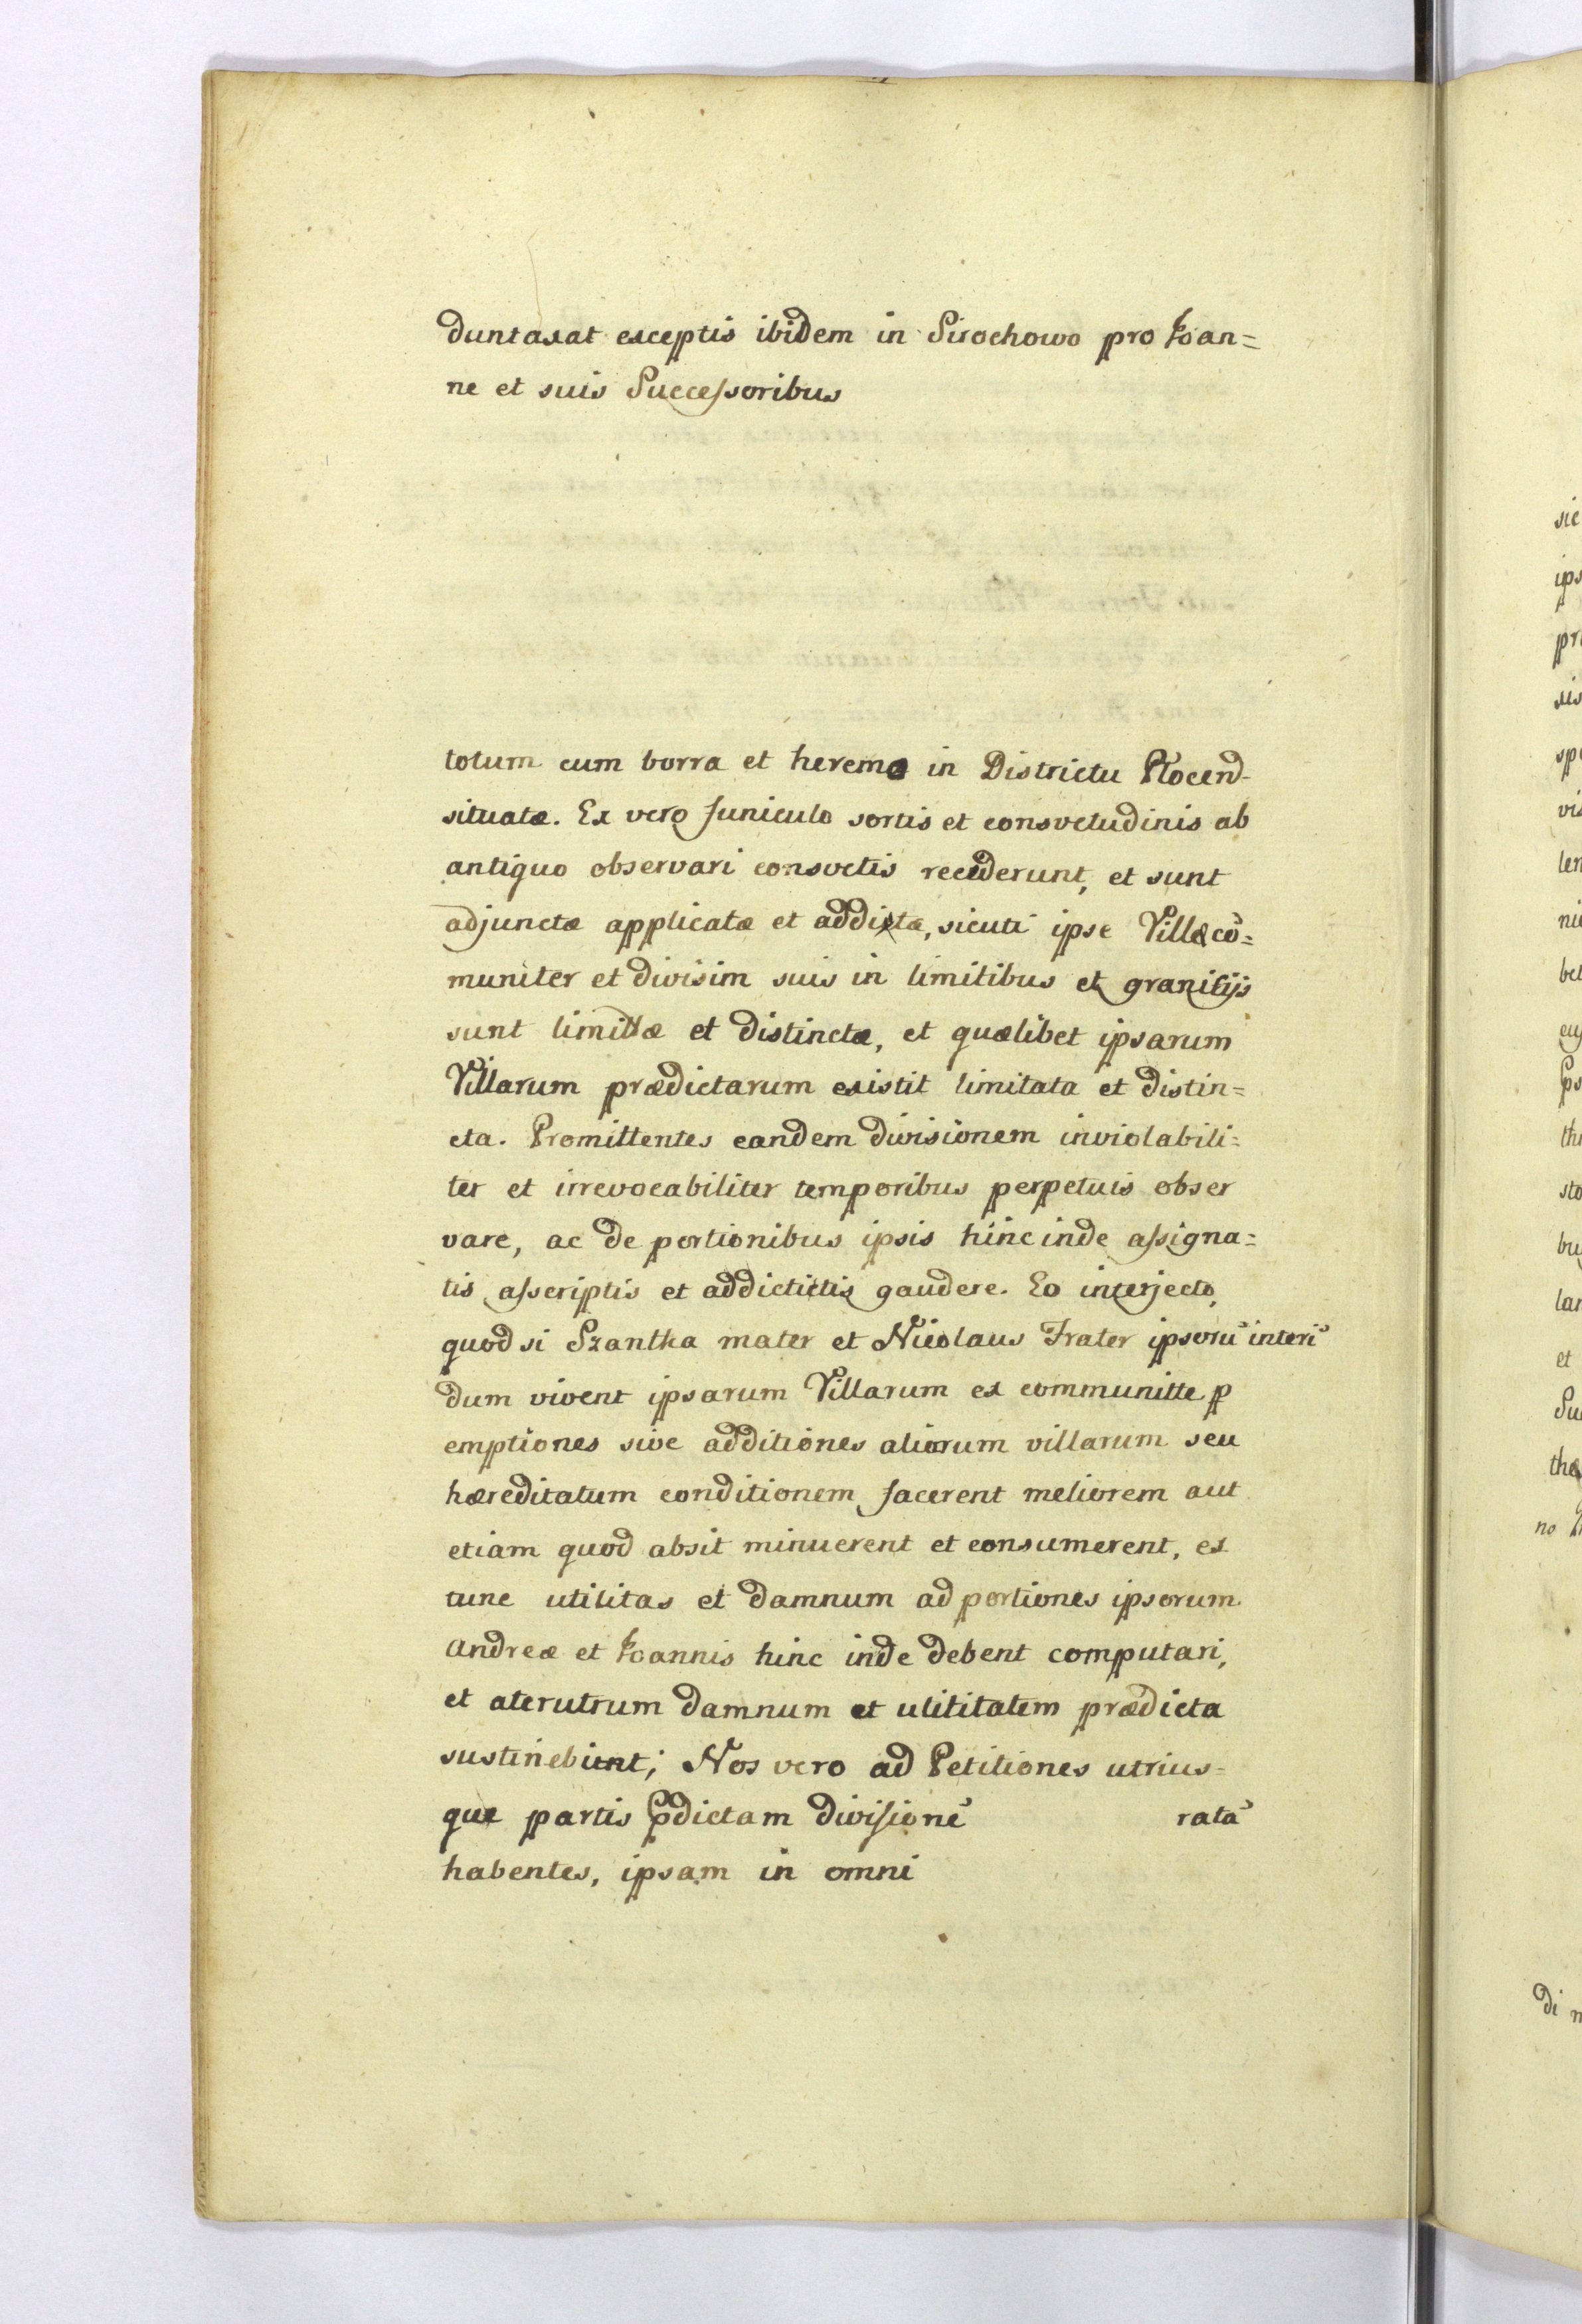 duntaxat exceptis ibidem in Sirochowo pro Joan=
ne et suis Successoribus
totum cum borra et heremo in Districtu Plocend-
situatæ. Ex vero funiculo sortis et consvetudinis ab
antiquo observari consvetis reciderunt, et sunt
adjunctæ applicatæ et addictæ, sicuti ipse Villæ cō=
muniter et divisim suis in limitibus et granitijs
sunt limittæ et distinctæ, et quælibet ipsarum
Villarum prædictarum existit limitata et distin=
cta. Promittentes eandem divisionem inviolabili=
ter et irrevocabiliter temporibus perpetuis obser
vare, ac de portionibus ipsis hinc inde assigna=
tis asscriptis et addictictis gaudere. Eo interjecto,
quod si Szantka mater et Nicolaus Frater ipsorū interī
dum vivent ipsarum Villarum ex communitte p
emptiones sive additiones aliorum villarum seu
hæreditatum conditionem facerent meliorem aut
etiam quod absit minuerent et consumerent, ex
tunc utilitas et damnum ad portiones ipsorum
Andreæ et Joannis hinc inde debent computari,
et aterutrum damnum et utilitatem prædicta
sustinebunt; Nos vero ad Petitiones utrius=
que partis pdictam divisionē ratā
habentes, ipsam in omni